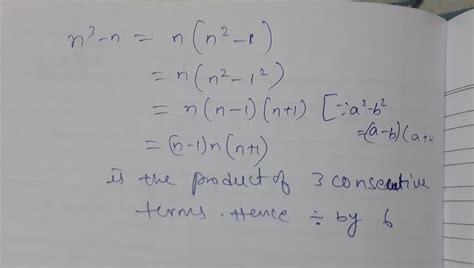 n³-n = n(n²-1)
= n(n²-1²)
= n(n-1)(n+1) [∵a²-b²
=(a-b)(a+
= (n-1)n(n+1)
is the product of 3 consecutive
terms. Hence ÷ by 6